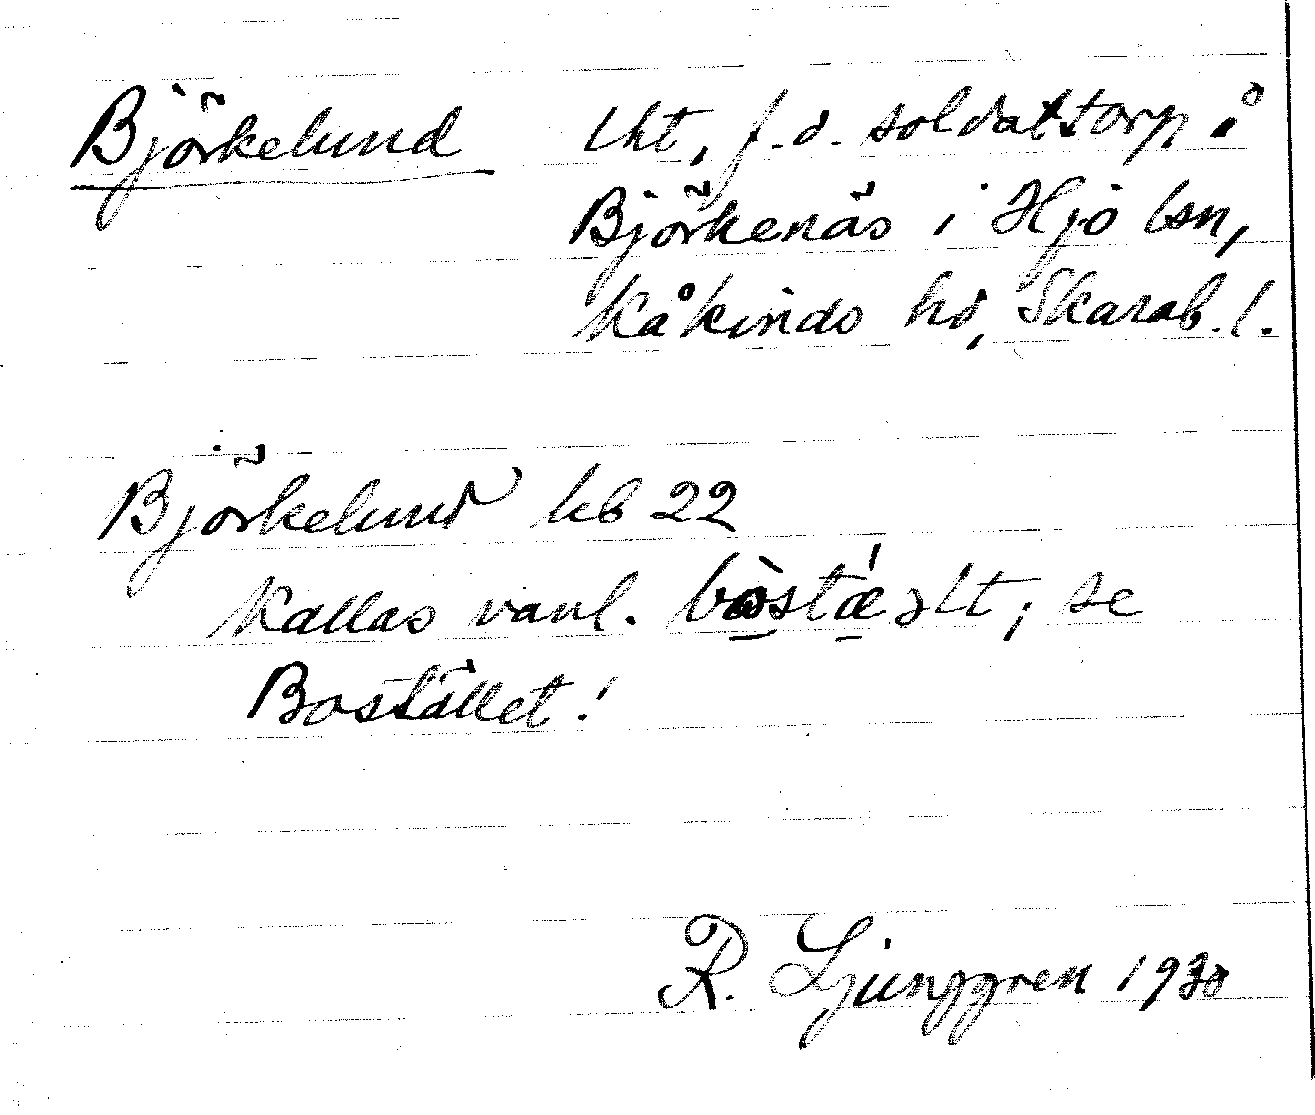 Björkelund lht, f.d. soldattorp å
Björkenäs i Hjo lsn,
Kåkinds hd, Skarab. l.
Björkelund kb 22
Kallas vanl. ; se
Bostället!
R. Ljunggren 1930